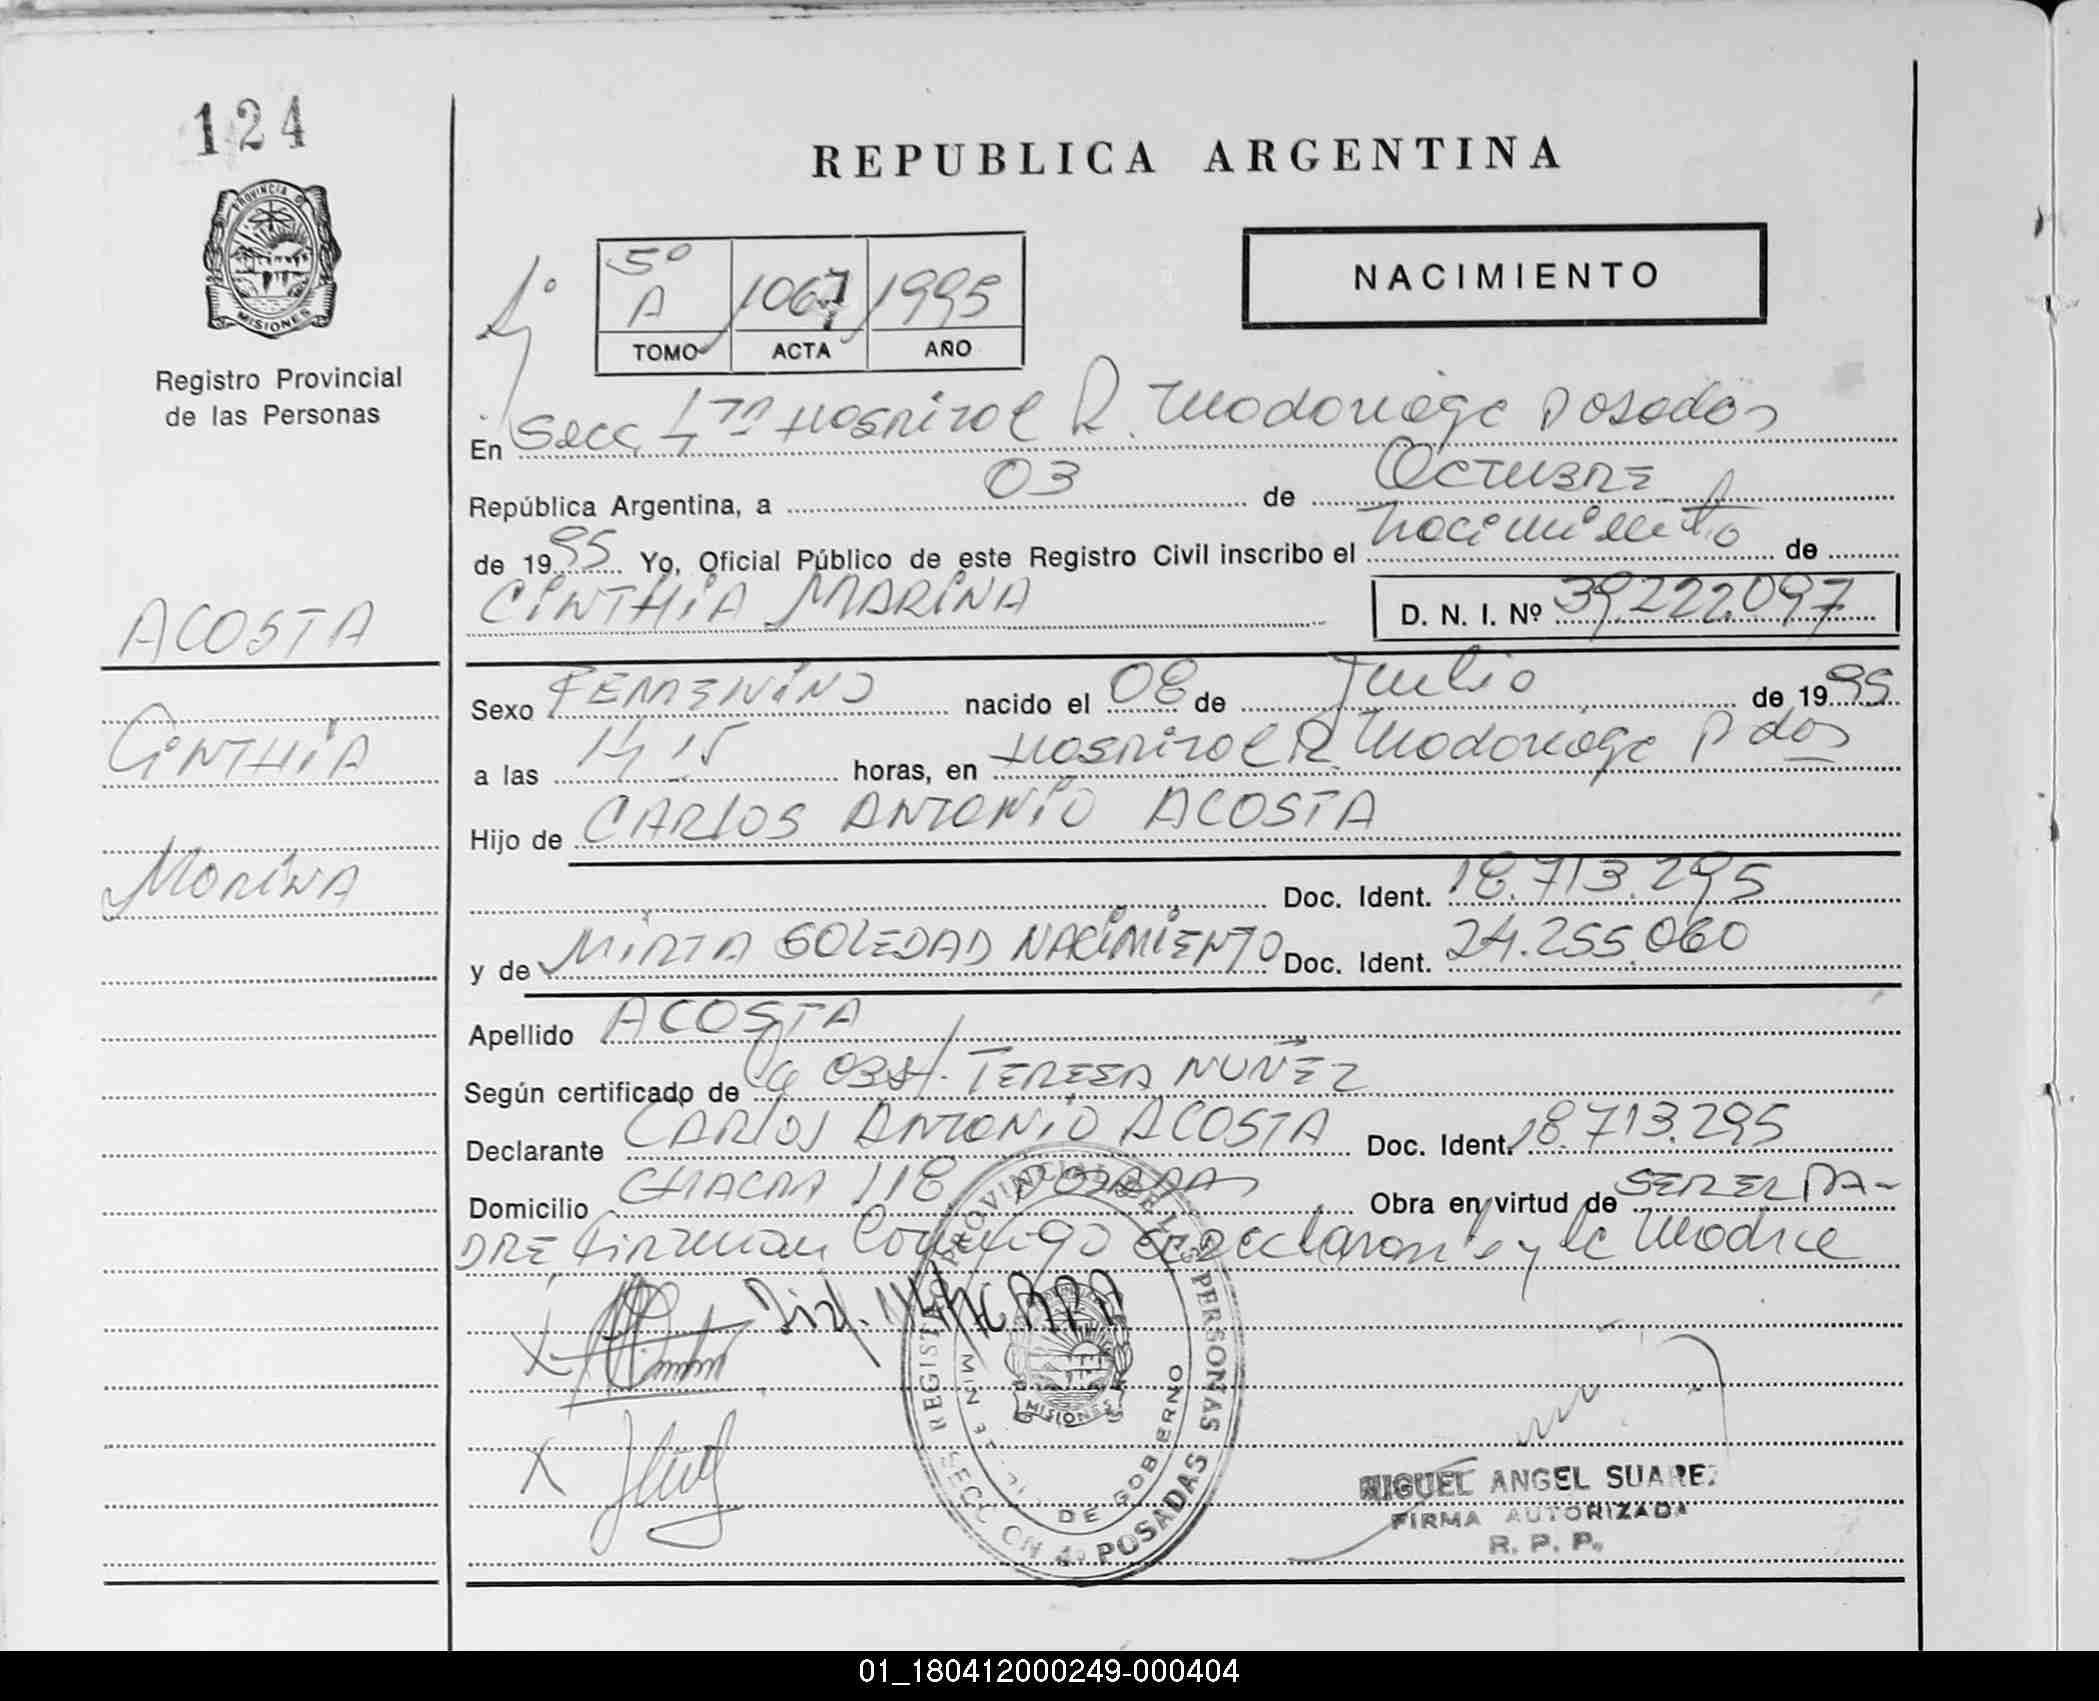 124
PROVINCIA D
MISIONES
Registro Provincial
de las Personas
REPUBLICA ARGENTINA
5º
A 1067 1995
TOMO ACTA AÑO
NACIMIENTO
En Secc 4ta Hospital R. Madariaga Posadas
República Argentina, a 03 de Octubre
de 1995 Yo, Oficial Público de este Registro Civil inscribo el nacimiento de
CINTHIA MARINA D. N. I. Nº 39.222.097
ACOSTA
Cinthia
Marina
Sexo FEMENINO nacido el 08 de Julio de 1995
a las 14,15 horas, en Hospital R. Madariaga Pdas
Hijo de CARLOS ANTONIO ACOSTA
Doc. Ident. 18.713.295
y de MIRTA SOLEDAD NACIMIENTO Doc. Ident. 24.255.060
Apellido ACOSTA
Según certificado de la OBST. TERESA NUÑEZ
Declarante CARLOS ANTONIO ACOSTA Doc. Ident. 18.713.295
Domicilio CHACRA 118 POSADAS Obra en virtud de SER EL PA-
DRE firman conmigo el declarante y la madre
REGISTRO PROVINCIAL DE LAS PERSONAS
MISIONES
DE GOBIERNO
SECCION 4a POSADAS
MIGUEL ANGEL SUAREZ
FIRMA AUTORIZADA
R. P. P.
01_180412000249-000404